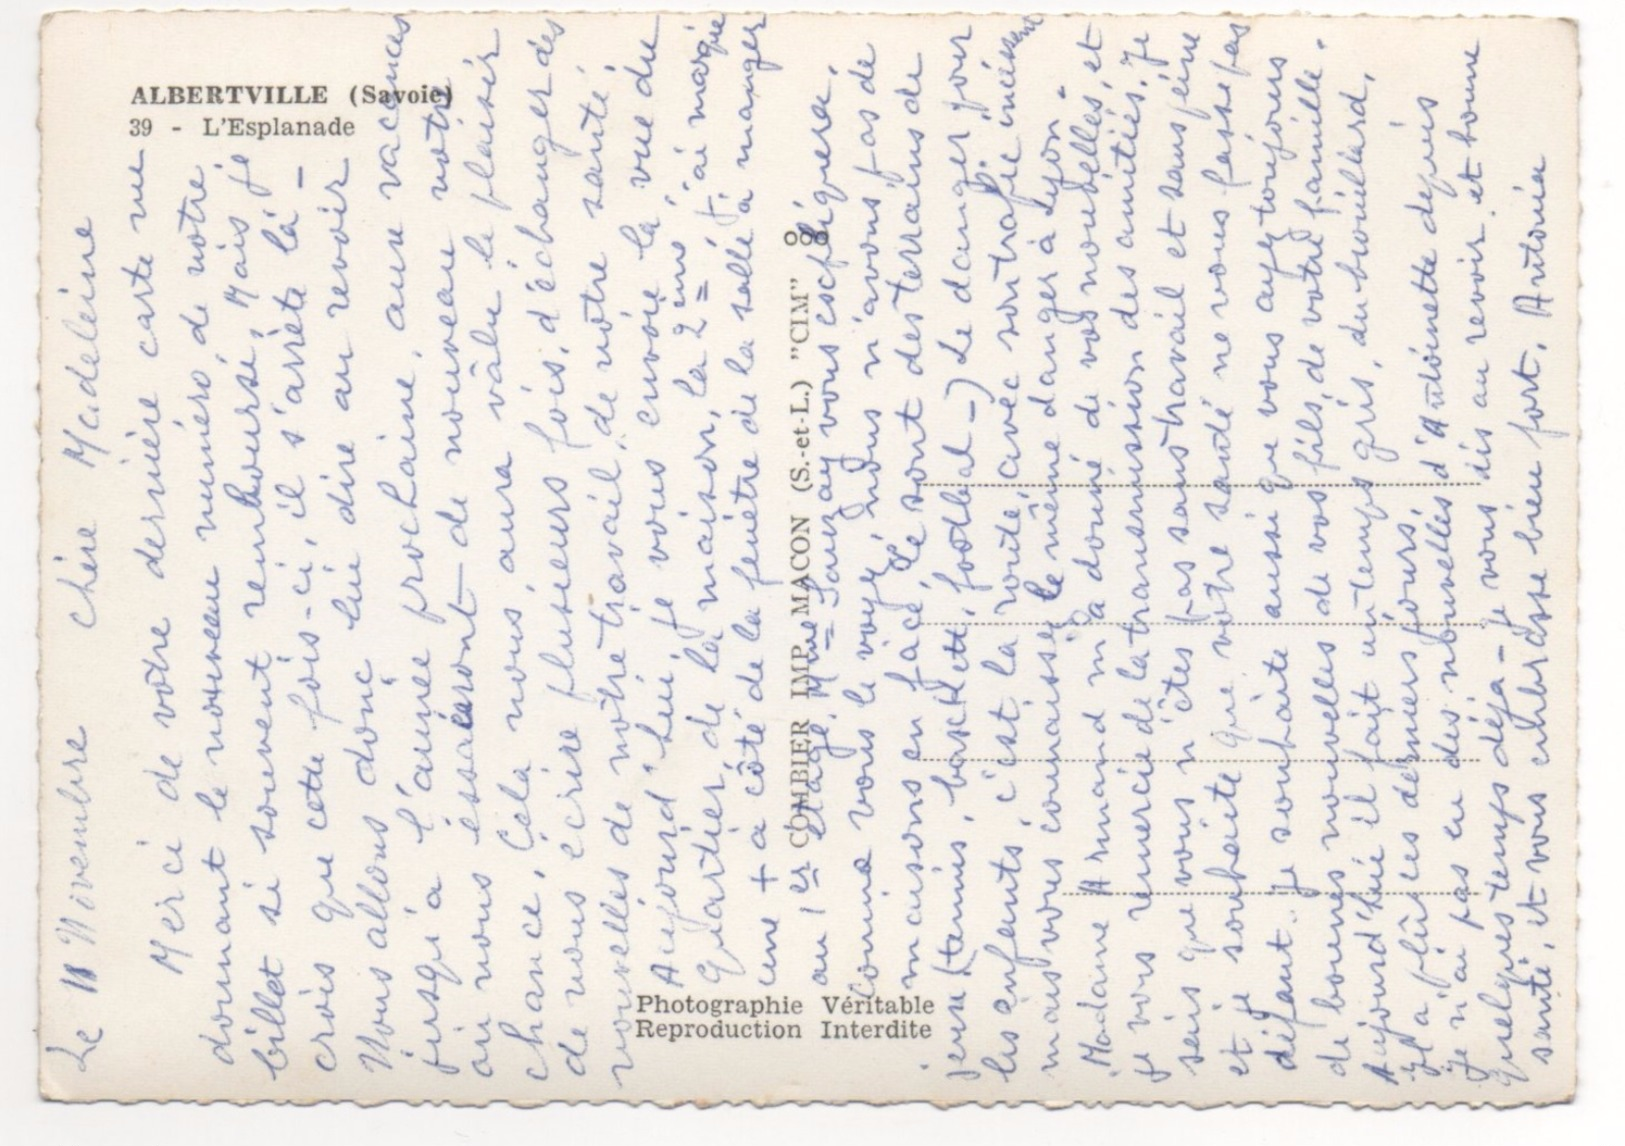 ALBERTVILLE (Savoie)
39 - L'Esplanade
Photographie Véritable
Reproduction Interdite
COMBIER IMP. MACON (S.-et-L.) "CIM"
Le 11 Novembre chère Madeleine
Merci de votre dernière carte me
donnant le nouveau numéro de votre
billet si souvent remboursé, Mais je
crois que cette fois-ci, il s'arrête là -
Nous allons donc lui dire au revoir
jusqu'à l'année prochaine, aux vacances
où nous éssaieront de nouveau notre
chance, Cela nous aura vâlu le plaisir
de nous écrire plusieurs fois, d'échanger des
nouvelles de nôtre travail, de nôtre santé,
Aujourd'hui, je vous envoie la vue du
Quartier, de la maison, la 2ème, j'ai marqué
une + à côté de la fenêtre de la salle à manger
au 1er étage. Mme Sauzay vous expliquera,
Comme vous le voyez, nous n'avons pas de
maisons en face, Ce sont des terrains de
jeux (tennis, baskett, footbal -) Le danger pour
les enfants, c'est la route, avec son trafic incéssant
mais vous connaissez le même danger à Lyon -
Madame Armand m'a donné de vos nouvelles, et
je vous remercie de la transmission des amitiés. Je
sais que vous n'êtes pas sans travail et sans peine
et je souhaite que votre santé ne vous fasse pas
défaut. Je souhaite aussi que vous ayez toujours
de bonnes nouvelles de vos fils, de votre famille.
Aujourd'hui il fait un temps gris, du brouillard,
Il a plû ces derniers jours
Je n'ai pas eu des nouvelles d'Antoinette depuis
quelques temps déjà - Je vous dis au revoir et bonne
santé, et vous embrasse bien fort. Antonia